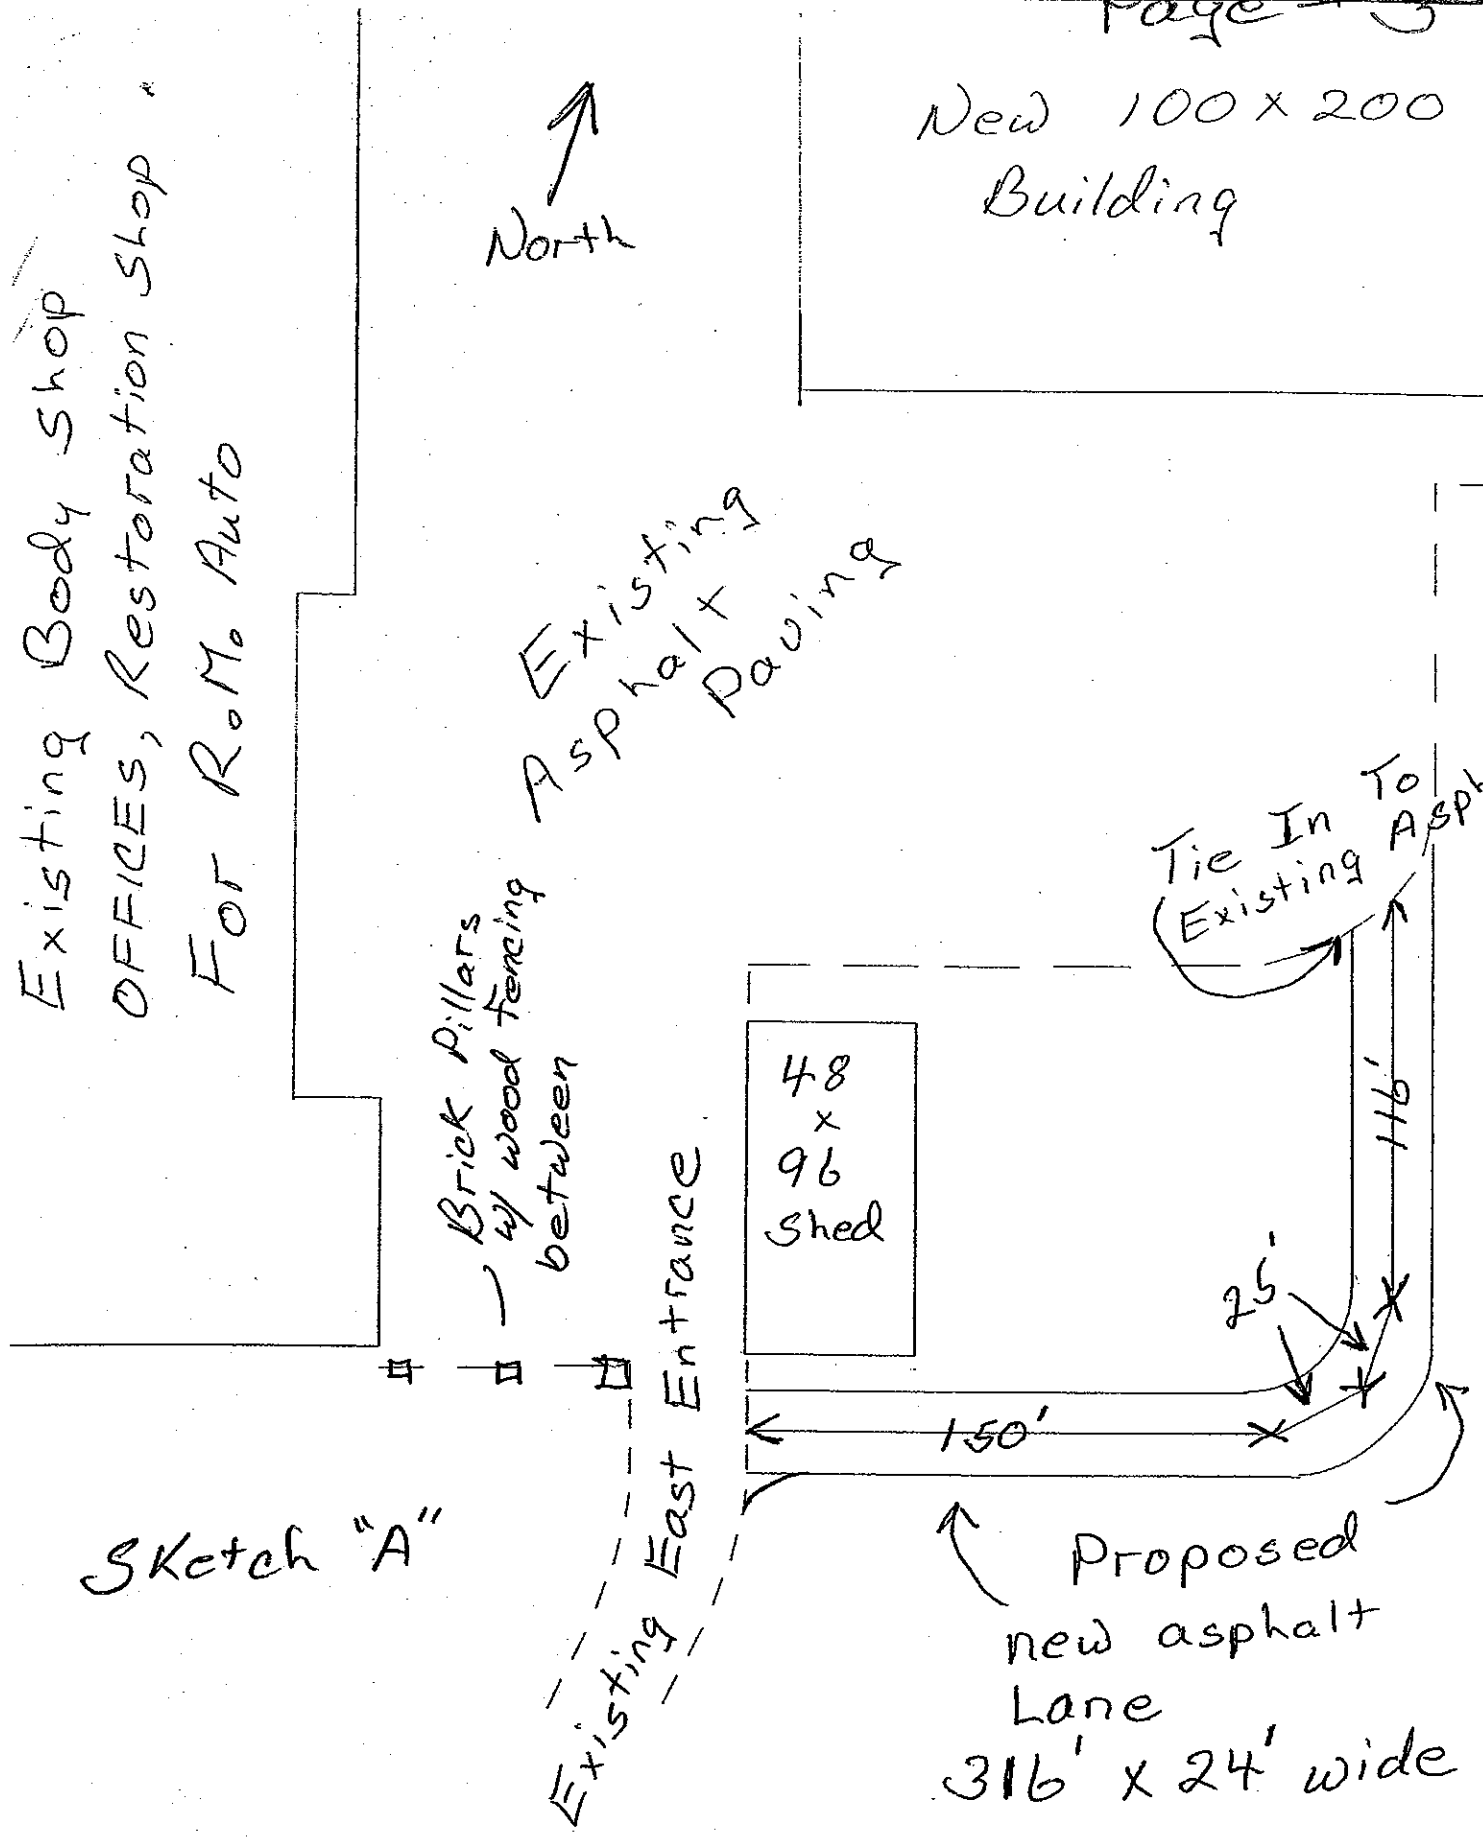 Page - 3
New 100 x 200
Building
North
Existing Body Shop
OFFICES, Restoration Shop.
For R.M. Auto
Existing
Asphalt
Paving
Tie In To
Existing Asph
Brick Pillars
w/ wood Fencing
between
48
x
96
Shed
116'
25'
150'
Existing East Entrance
Sketch "A"
Proposed
new asphalt
Lane
316' x 24' wide